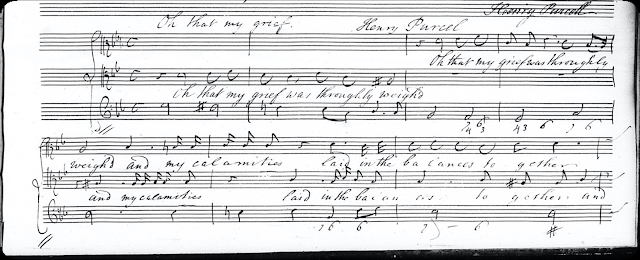 Henry Purcell
Oh that my grief. Henry Purcel
Oh that my grief was throughly
Oh that my grief was throughly weigh'd
6 6
4 3 6 6
weigh'd and my calamities laid in the balances to gether
and my calamities laid in the balan ces to gether and
6 6 6
#